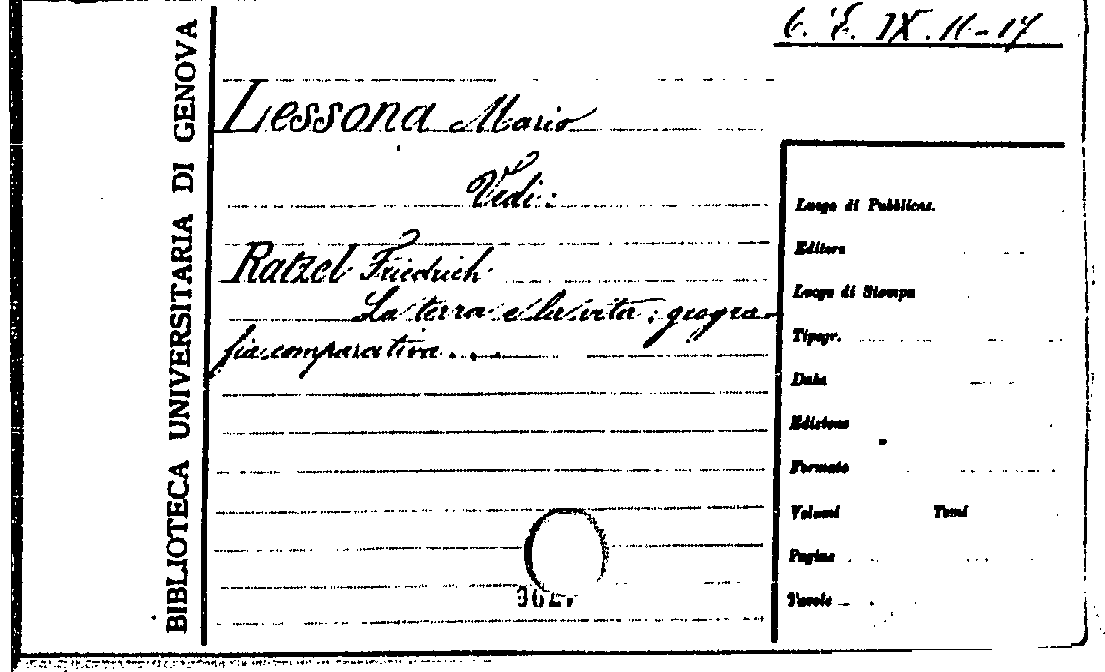 6. E. IX. 11-17
BIBLIOTECA UNIVERSITARIA DI GENOVA
Lessona Mario
Vedi:
Ratzel Friedrich
La terra e la vita; geogra-
fia comparativa...
Luogo di Pubblicaz.
Editore
Luogo di Stampa
Tipogr.
Data
Edizione
Formato
Volumi Tomi
Pagine
Tavole